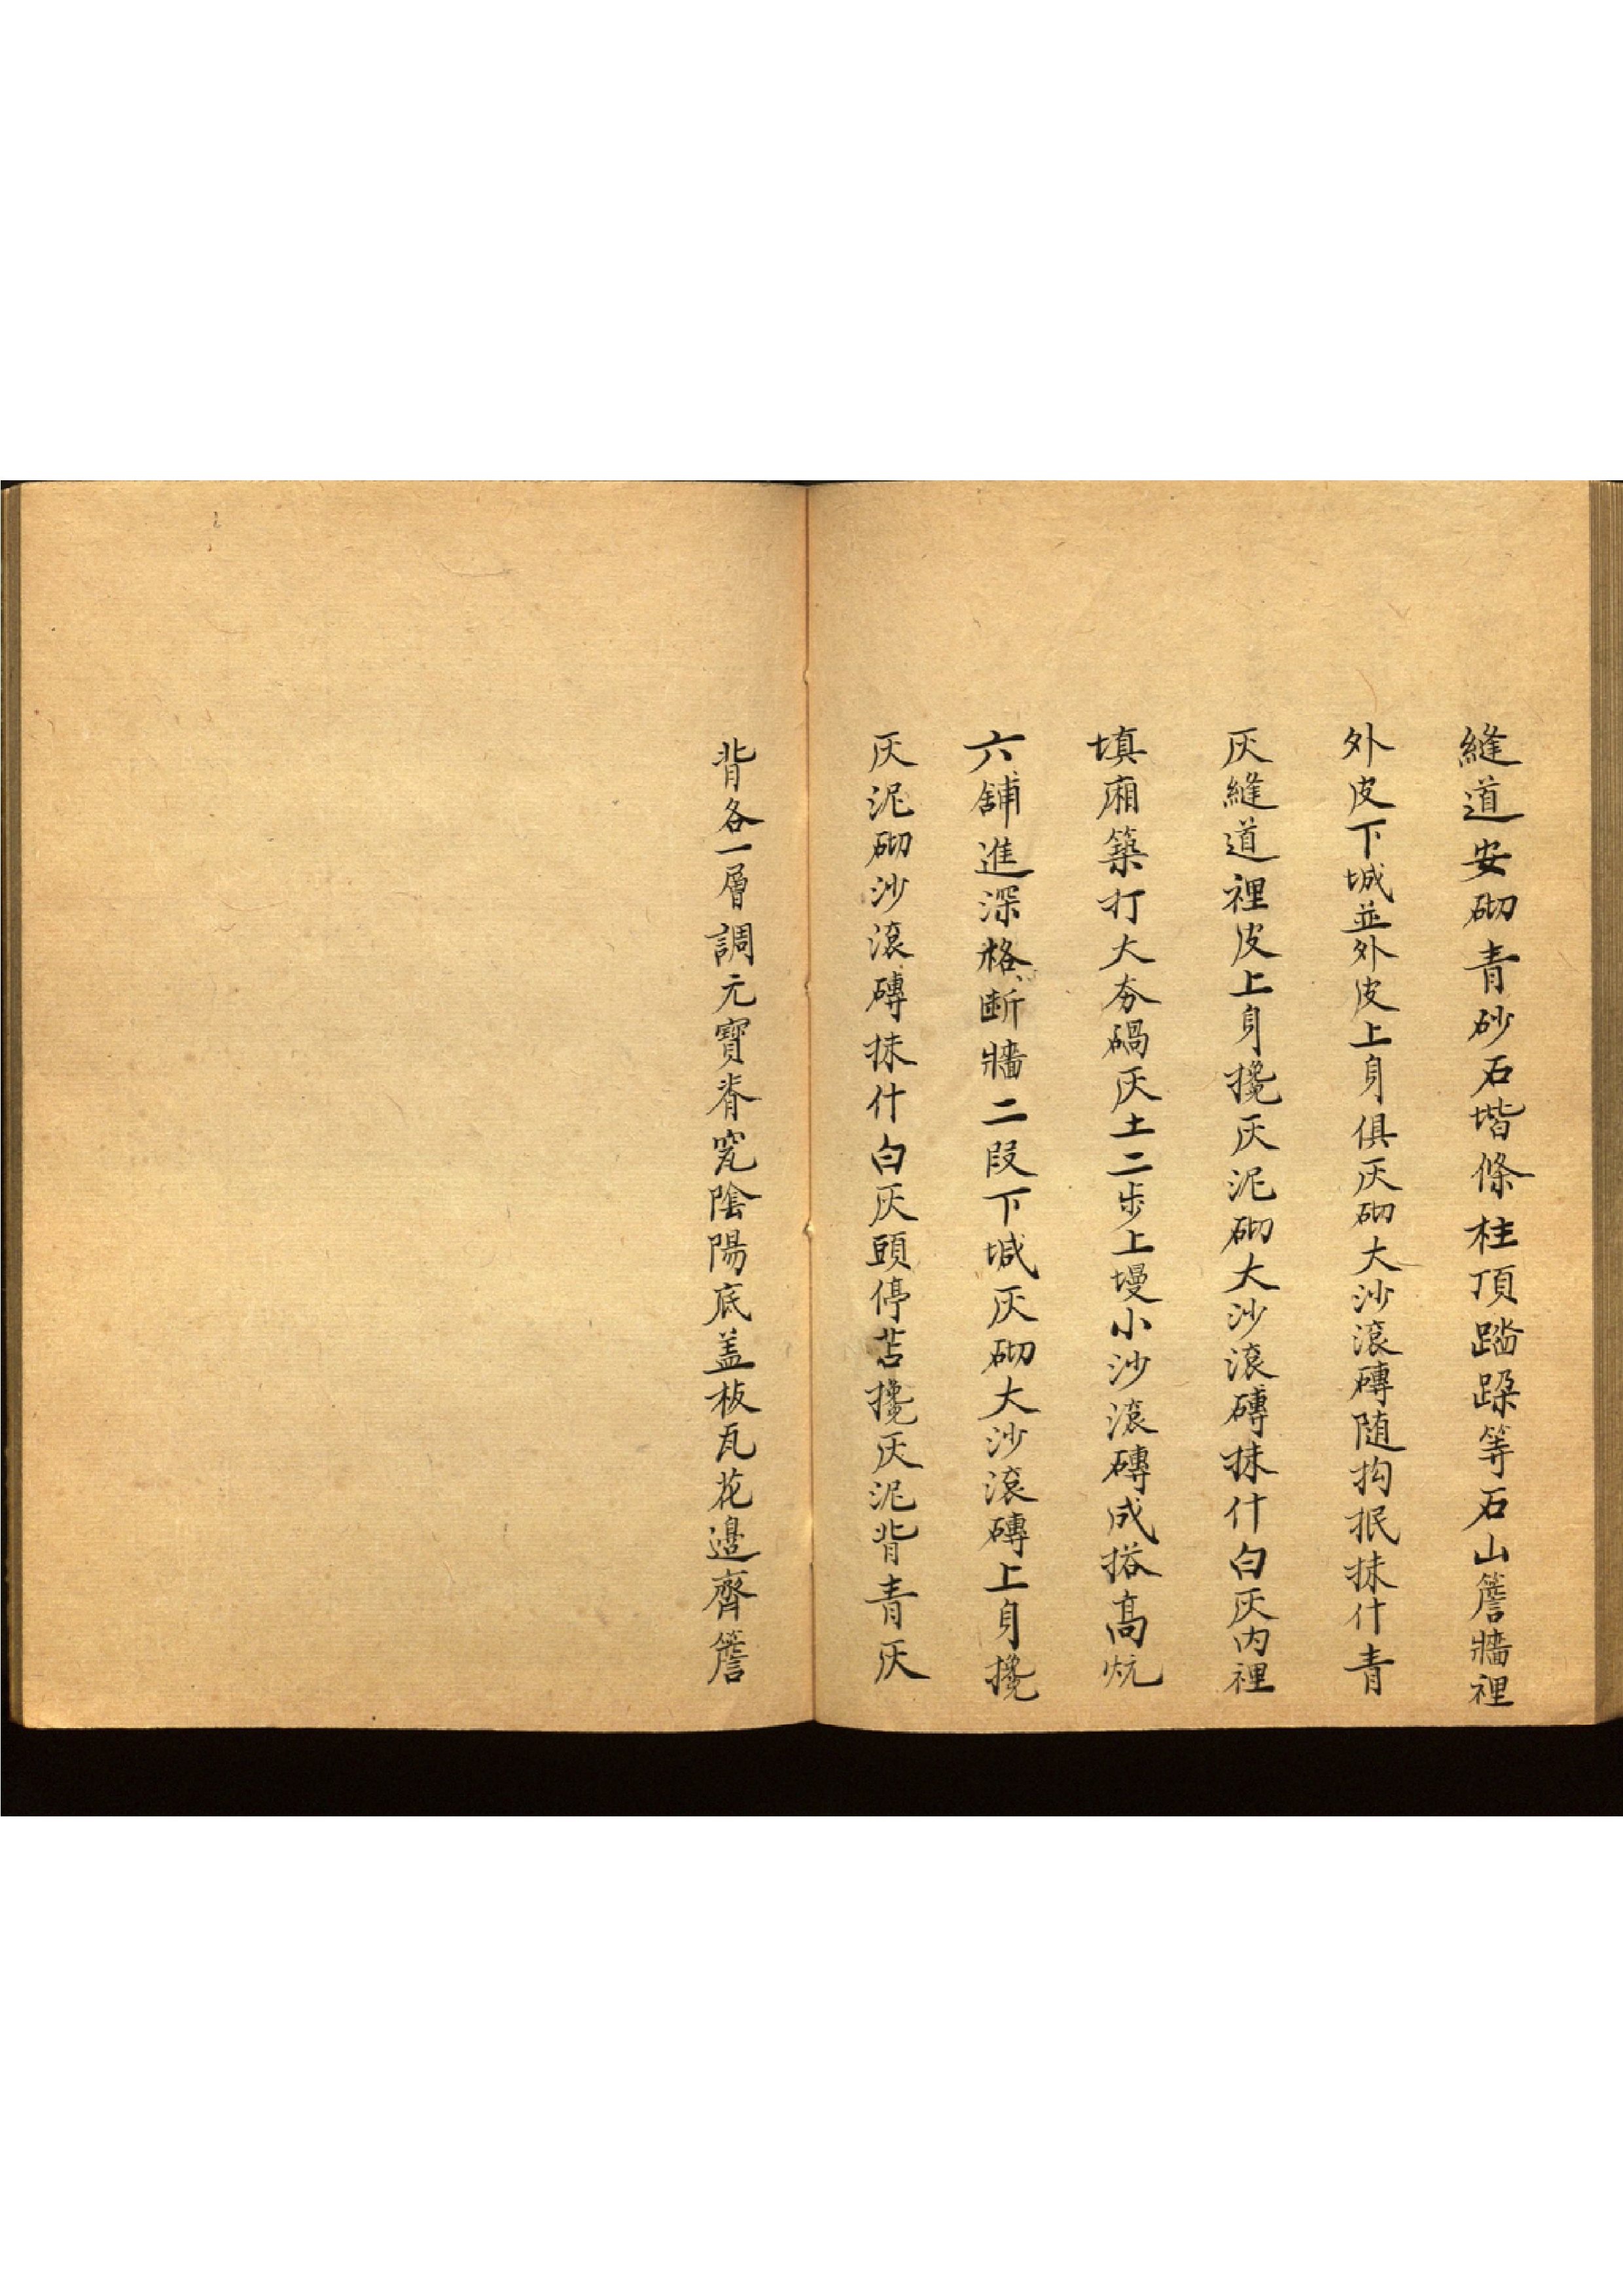 縫道安砌青砂石堦條柱頂踏跺等石山簷牆裡
外皮下堿並外皮上身俱灰砌大沙滾磚随抅抿抹什青
灰縫道裡皮上身攙灰泥砌大沙滾磚抹什白灰内裡
填廂築打大夯碢灰土二步上墁小沙滾磚成搭高炕
六舖進深格断牆二段下堿灰砌大沙滾磚上身攙
灰泥砌沙滾磚抹什白灰頭停苫攙灰泥背青灰
背各一層調元寶脊窊陰陽底盖板瓦花邉齊簷